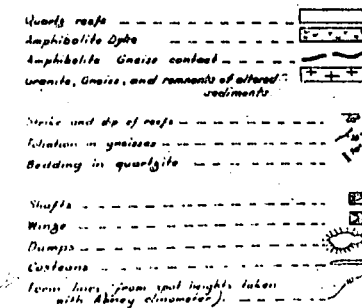 Quartz reefs
Amphibolite Dyke
Amphibolite Gneiss contact
Granite, Gneiss, and remnants of altered
sediments
Strike and dip of reefs
Foliation in gneisses
Bedding in quartzite
Shafts
Winze
Dumps
Costeans
Form lines (from spot heights taken
with Abney clinometer)